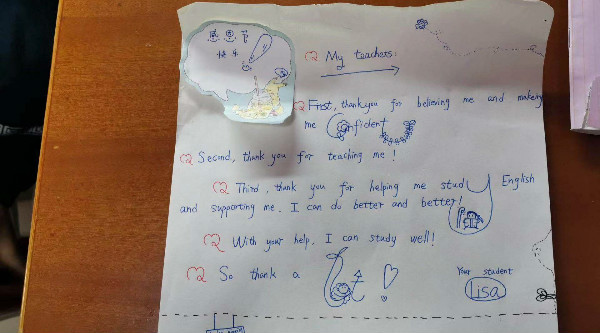 感恩节
快乐
My teachers:
First, thank you for believing me and making
me Confident
Second, thank you for teaching me!
Third, thank you for helping me study English
and supporting me. I can do better and better!
With your help, I can study well!
So thank a lot!
Your student
Lisa